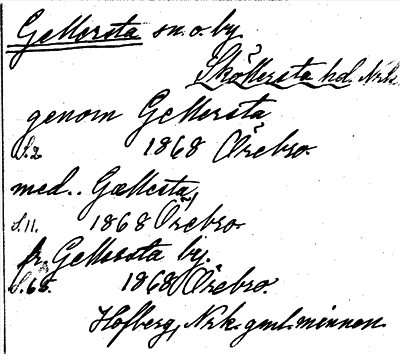 Gellersta sn. o. by
Sköllersta hd. Nrk.
genom Gellersta
S.2 1868 Örebro.
med.. Gællesta,
S.11. 1868 Örebro.
fr. Gellersta by.
S.65. 1868 Örebro.
Hofberg, Nrk. gml. minnen.